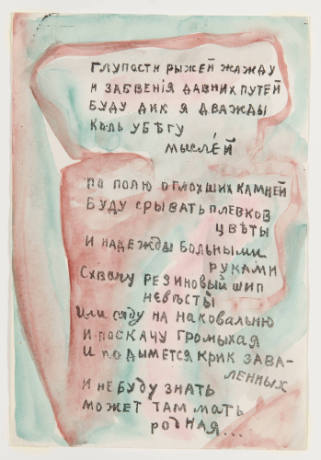 глупости рыжей жажду
и забвенiя давних путей
буду дик я дважды
коль убѣгу
мыслéй
по полю оглохших камней
буду срывать плевков
цвѣты
и надежды больными
руками
Схвачу резиновый шип
невѣсты
Или сяду на наковальню
и поскачу громыхая
и подымется крик зава-
ленных
И не буду знать
может там мать
родная...